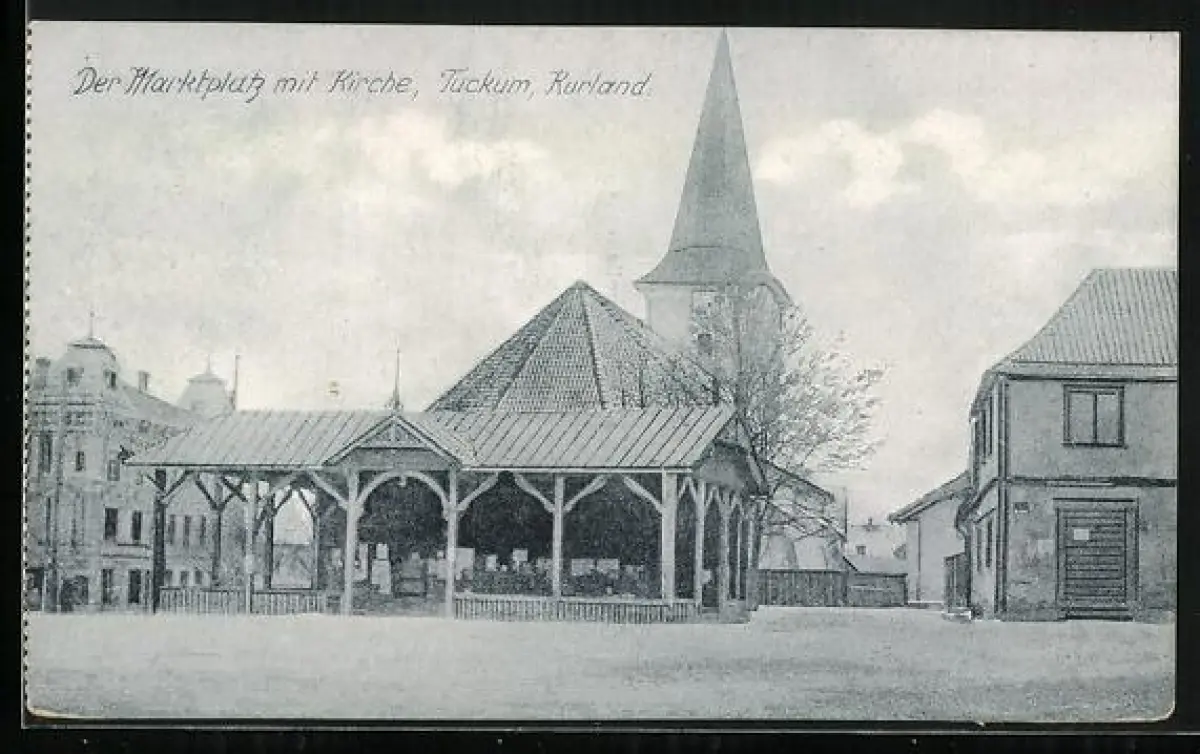 Der Marktplatz mit Kirche, Tuckum, Kurland.